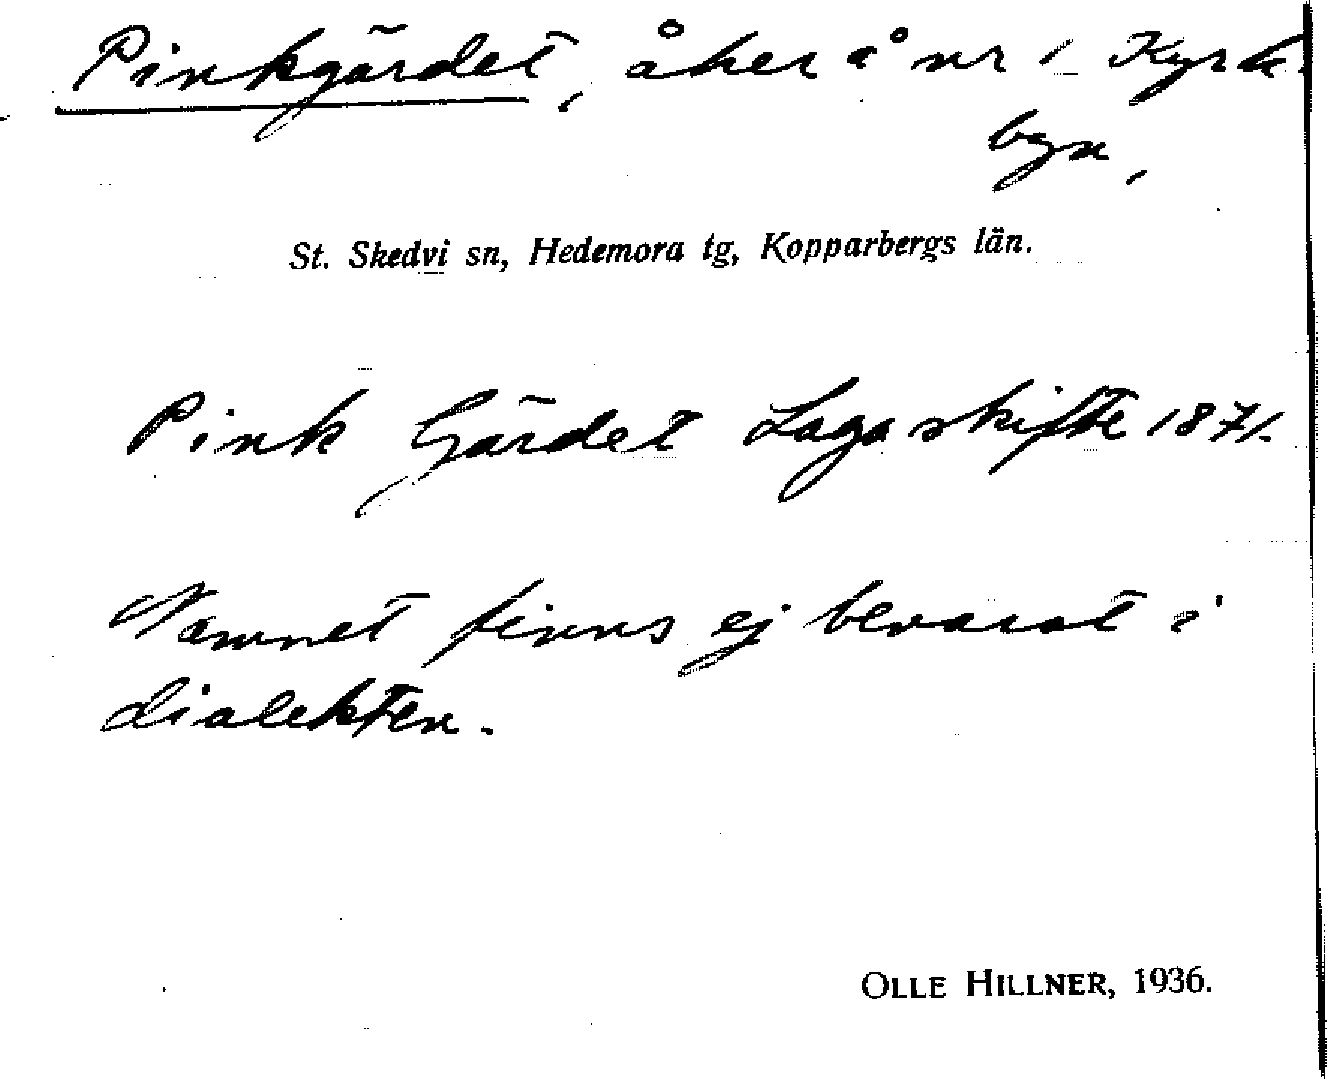 Pinkgärdet, åker å nr 1 Kyrk-
byn,
St. Skedvi sn, Hedemora tg, Kopparbergs län.
Pink Gärdet Laga skifte 1871.
Namnet finns ej bevarat i
dialekten.
OLLE HILLNER, 1936.